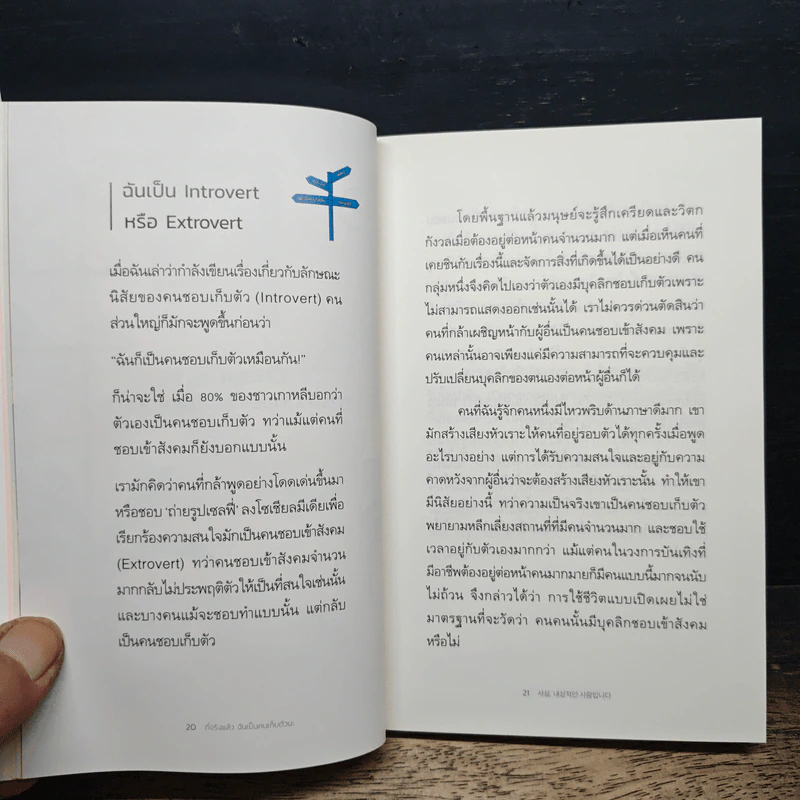 ฉันเป็น Introvert
หรือ Extrovert
เมื่อฉันเล่าว่ากำลังเขียนเรื่องเกี่ยวกับลักษณะ
นิสัยของคนชอบเก็บตัว (Introvert) คน
ส่วนใหญ่ก็มักจะพูดขึ้นก่อนว่า
“ฉันก็เป็นคนชอบเก็บตัวเหมือนกัน!”
ก็น่าจะใช่ เมื่อ 80% ของชาวเกาหลีบอกว่า
ตัวเองเป็นคนชอบเก็บตัว ทว่าแม้แต่คนที่
ชอบเข้าสังคมก็ยังบอกแบบนั้น
เรามักคิดว่าคนที่กล้าพูดอย่างโดดเด่นขึ้นมา
หรือชอบ ‘ถ่ายรูปเซลฟี่’ ลงโซเชียลมีเดียเพื่อ
เรียกร้องความสนใจมักเป็นคนชอบเข้าสังคม
(Extrovert) ทว่าคนชอบเข้าสังคมจำนวน
มากกลับไม่ประพฤติตัวให้เป็นที่สนใจเช่นนั้น
และบางคนแม้จะชอบทำแบบนั้น แต่กลับ
เป็นคนชอบเก็บตัว
20 ที่จริงแล้ว ฉันเป็นคนเก็บตัวนะ
โดยพื้นฐานแล้วมนุษย์จะรู้สึกเครียดและวิตก
กังวลเมื่อต้องอยู่ต่อหน้าคนจำนวนมาก แต่เมื่อเห็นคนที่
เคยชินกับเรื่องนี้และจัดการสิ่งที่เกิดขึ้นได้เป็นอย่างดี คน
กลุ่มหนึ่งจึงคิดไปเองว่าตัวเองมีบุคลิกชอบเก็บตัวเพราะ
ไม่สามารถแสดงออกเช่นนั้นได้ เราไม่ควรด่วนตัดสินว่า
คนที่กล้าเผชิญหน้ากับผู้อื่นเป็นคนชอบเข้าสังคม เพราะ
คนเหล่านั้นอาจเพียงแค่มีความสามารถที่จะควบคุมและ
ปรับเปลี่ยนบุคลิกของตนเองต่อหน้าผู้อื่นก็ได้
คนที่ฉันรู้จักคนหนึ่งมีไหวพริบด้านภาษาดีมาก เขา
มักสร้างเสียงหัวเราะให้คนที่อยู่รอบตัวได้ทุกครั้งเมื่อพูด
อะไรบางอย่าง แต่การได้รับความสนใจและอยู่กับความ
คาดหวังจากผู้อื่นว่าจะต้องสร้างเสียงหัวเราะนั้น ทำให้เขา
มีนิสัยอย่างนี้ ทว่าความเป็นจริงเขาเป็นคนชอบเก็บตัว
พยายามหลีกเลี่ยงสถานที่ที่มีคนจำนวนมาก และชอบใช้
เวลาอยู่กับตัวเองมากกว่า แม้แต่คนในวงการบันเทิงที่
มีอาชีพต้องอยู่ต่อหน้าคนมากมายก็มีคนแบบนี้มากจนนับ
ไม่ถ้วน จึงกล่าวได้ว่า การใช้ชีวิตแบบเปิดเผยไม่ใช่
มาตรฐานที่จะวัดว่า คนคนนั้นมีบุคลิกชอบเข้าสังคม
หรือไม่
21 사실, 내성적인 사람입니다